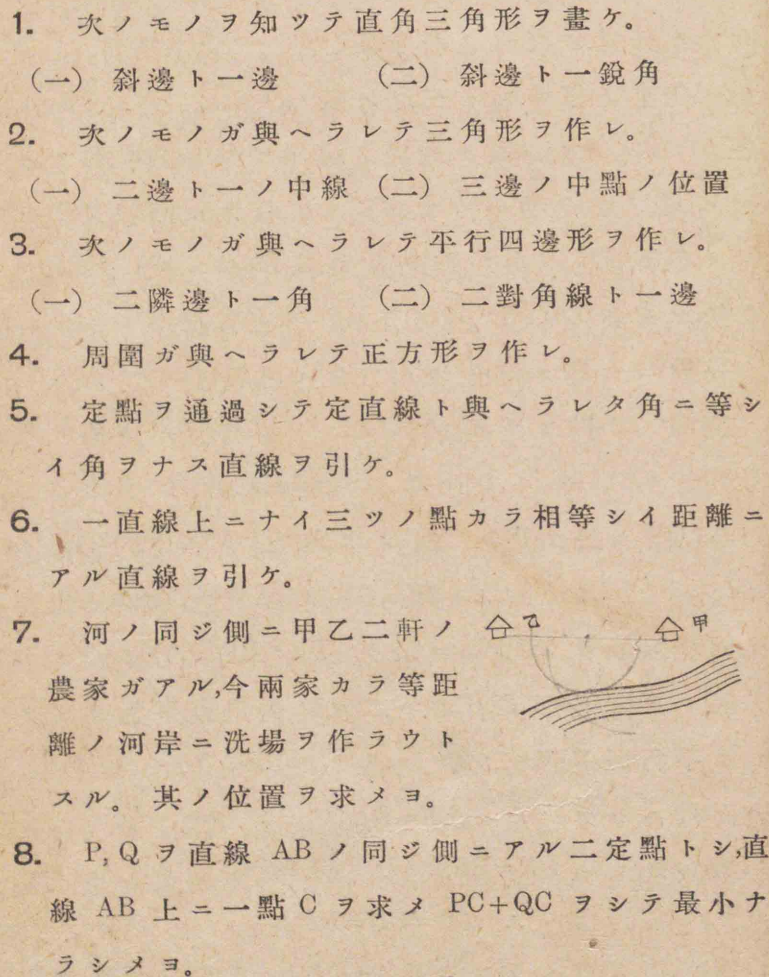 1. 次ノモノヲ知ツテ直角三角形ヲ畫ケ。
(一) 斜邊ト一邊 (二) 斜邊ト一鋭角
2. 次ノモノガ與ヘラレテ三角形ヲ作レ。
(一) 二邊ト一ノ中線 (二) 三邊ノ中點ノ位置
3. 次ノモノガ與ヘラレテ平行四邊形ヲ作レ。
(一) 二隣邊ト一角 (二) 二對角線ト一邊
4. 周圍ガ與ヘラレテ正方形ヲ作レ。
5. 定點ヲ通過シテ定直線ト與ヘラレタ角ニ等シ
イ角ヲナス直線ヲ引ケ。
6. 一直線上ニナイ三ツノ點カラ相等シイ距離ニ
アル直線ヲ引ケ。
7. 河ノ同ジ側ニ甲乙二軒ノ
農家ガアル,今兩家カラ等距
離ノ河岸ニ洗場ヲ作ラウト
スル。其ノ位置ヲ求メヨ。
乙 甲
8. P, Q ヲ直線 AB ノ同ジ側ニアル二定點トシ,直
線 AB 上ニ一點 C ヲ求メ PC+QC ヲシテ最小ナ
ラシメヨ。